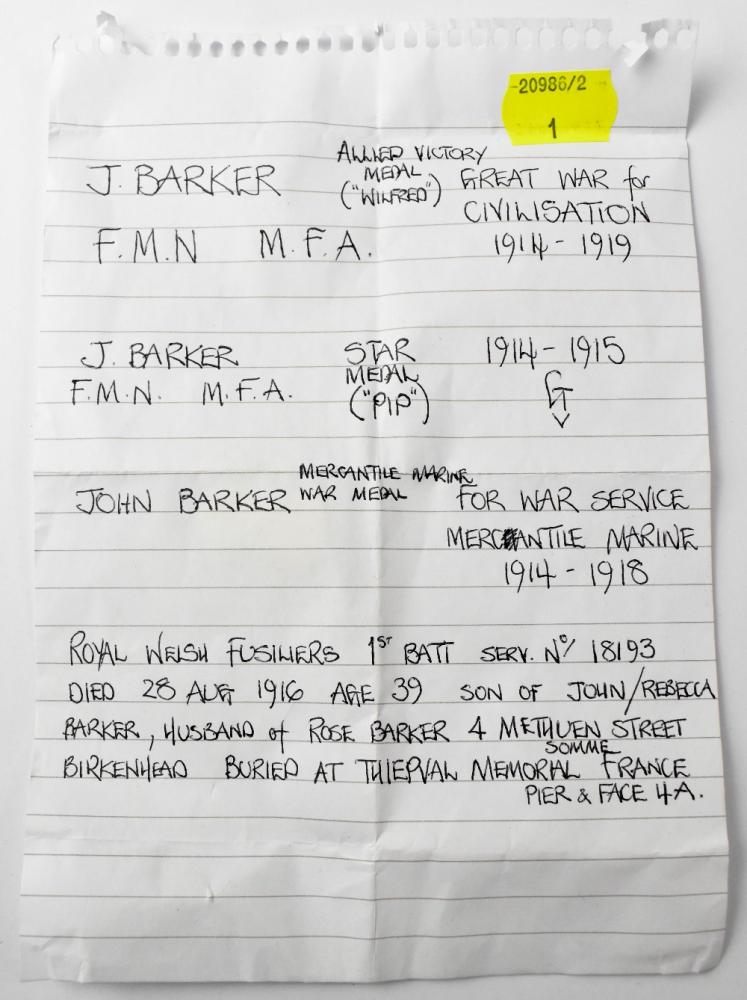 -20986/2
1
J. BARKER ALLIED VICTORY MEDAL ("WILFRED") GREAT WAR for CIVILISATION
F.M.N M.F.A. 1914 - 1919
J. BARKER STAR MEDAL ("PIP") 1914 - 1915
F.M.N. M.F.A.
JOHN BARKER MERCANTILE MARINE WAR MEDAL FOR WAR SERVICE
MERCANTILE MARINE
1914 - 1918
ROYAL WELSH FUSILIERS 1ST BATT SERV. No/ 18193
DIED 28 AUG 1916 AGE 39 SON OF JOHN/REBECCA
BARKER, HUSBAND of ROSE BARKER 4 METHUEN STREET
BIRKENHEAD BURIED AT THIEPVAL MEMORIAL SOMME FRANCE
PIER & FACE 4A.